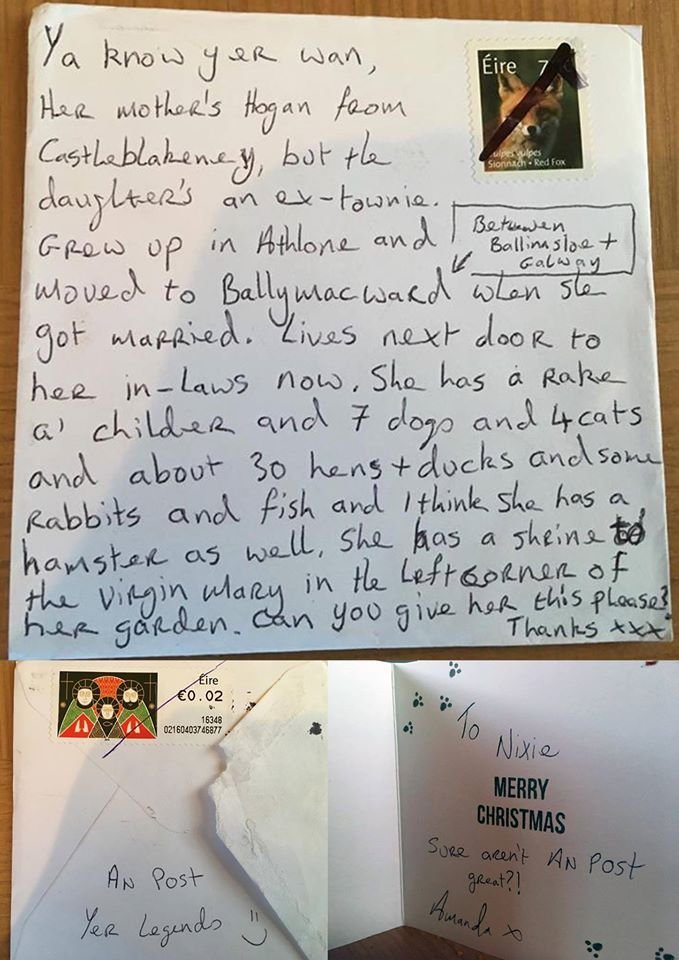 Ya know yer wan,
Her mother's Hogan from
Castleblakeney, but the
daughter's an ex-townie.
Grew up in Athlone and
moved to Ballymacward when she
got married. Lives next door to
her in-laws now. She has a rake
a' childer and 7 dogs and 4 cats
and about 30 hens + ducks and some
rabbits and fish and I think she has a
hamster as well. She has a shrine to
the Virgin Mary in the left corner of
her garden. Can you give her this please?
Thanks xxx
Between
Ballinasloe +
Galway
Éire 7
vulpes vulpes
Sionnach • Red Fox
Éire
€0.02
16348
02160403746877
An Post
Yer Legends
To Nixie
MERRY
CHRISTMAS
Sure aren't An Post
great?!
Amanda x